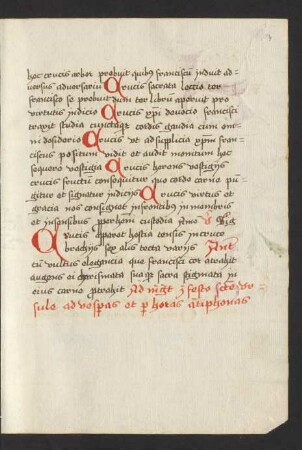 hac crucis arbor probuit quibus franciscum induit ad-
versus adversarium Crucis sacrata lectio ter
francisco se probuit dum ter librum aperuit pro
virtutis indicio Crucis xpi devocio francisci
traxit studia cunctaque cordis gaudia cum om-
ni desiderio Crucis et ad supplicia xpm fran-
ciscus positum vidit et audit monitum hac
sequere vestigia Crucis herens vestigiis
crucis fructum consequitur quo corde carne pun-
gitur et signatur indiciis Crucis virtus et
gracia nos consignet in sensibus in membris
et in sensibus perhenni custodia Amen
Crucis apparet hostia tensis in cruce
brachiis sex alis tecta variis Ant
cum vultus elegancia que francisci cor attrahit
augens ei sua sacra stigmata in
eius carne protrahit Ad in festo sctе ur-
sule ad vesperas et per horas antiphonas